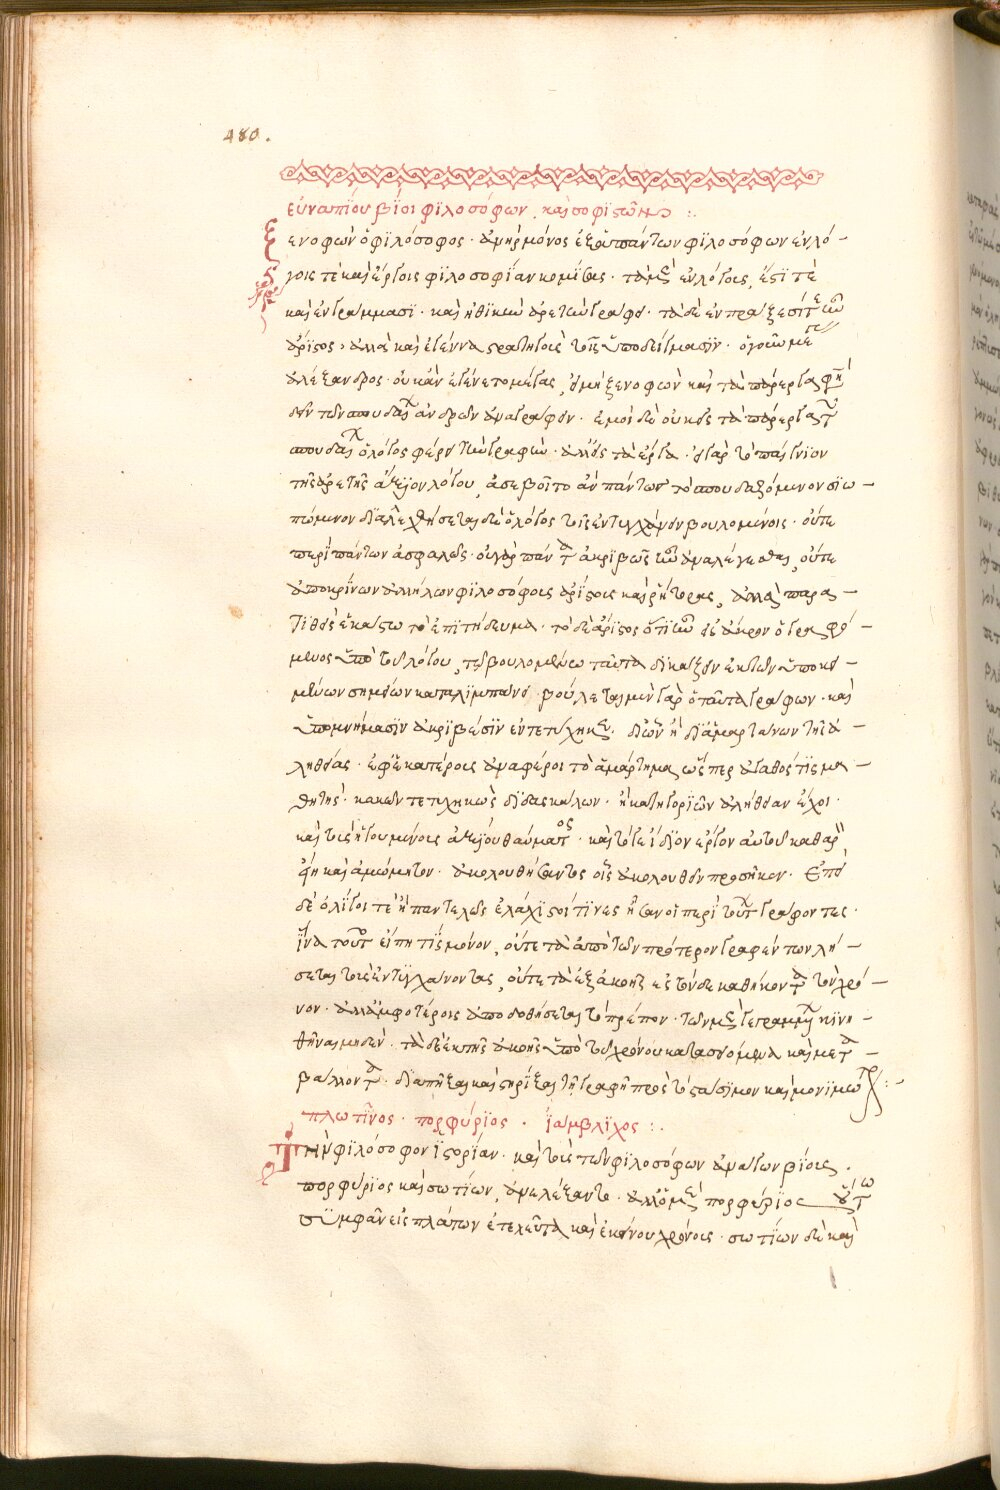 480.
εὐναπΐου βΐοι φϊλοσόφων, καὶ σοφϊστῶν :.
Ξενοφῶν ὁ φϊλόσοφος · ἀνὴρ μόνος ἐξ ἁπάντων φϊλοσόφων ἐν λό-
γοις τὲ καὶ ἔργοις φϊλοσοφΐαν κομίσας · τὰ μὲν ἐν λόγοις, ἔστϊ τὲ
καὶ ἐν γράμμασϊ · καὶ ἠθϊκὴν ἀρετὴν γράφει · τὰ δὲ ἐν πράξεσί τε ἦν
ἄρϊστος, ἀλλὰ καὶ ἐγέννα στρατηγοὺς τοῖς ὑποδείγμασϊν · ὁ γοῦν μέγας
ἀλέξανδρος · οὐκ ἂν ἐγένετο μέγας, εἰ μὴ ξενοφῶν καὶ τὰ πάρεργα φησὶ
δεῖν τῶν σπουδαίων ἀνδρῶν ἀναγράφειν · ἐμοὶ δὲ οὐκ εἰς τὰ πάρεργα τῶν
σπουδαίων ὁ λόγος φέρει τὴν γραφὴν · ἀλλ' εἰς τὰ ἔργα · εἰ γὰρ τὸ παίγνϊον
τῆς ἀρετῆς ἄξϊον λόγου, ἀσεβοῖτο ἂν πάντως τὸ σπουδαζόμενον σϊω-
πώμενον διαλεχθήσεται δὲ ὁ λόγος τοῖς ἐντυγχάνειν βουλομένοις · οὔτε
περὶ πάντων ἀσφαλῶς · οὐ γὰρ πάντα ἀκριβῶς ἦν ἀναλέγεσθαι, οὔτε
ἀποκρΐνων ἀλλήλων φϊλοσόφους ἀρΐστους καὶ ῥήτορας, ἀλλὰ παρα-
τϊθεὶς ἑκάστω τὸ ἐπϊτήδευμα · τὸ δὲ ἄρϊστος ὅτϊ ἦν εἰς ἄκρον ὁ γραφό-
μενος ὑπὸ τοῦ λόγου, τῷ βουλομένω ταῦτα δϊκάζειν ἐκ τῶν ὑποκει-
μένων σημείων καταλϊμπάνει · βούλεται μὲν γὰρ ὁ ταῦτα γράφων · καὶ
ὑπομνήμασϊν ἀκρϊβέσϊν ἐντετύχηκεν · δϊ' ὧν ἢ δϊαμαρτάνων τῆς ἀ-
ληθείας · ἐφ' ἑκατέροις ἀναφέροι τὸ ἁμάρτημα, ὥσπερ ἀγαθός τϊς μα-
θητὴς · κακῶν τετυχηκὼς δϊδασκάλων · ἢ κατηγορϊῶν ἀλήθειαν ἔχοι ·
καὶ τοὺς ἡγουμένους ἀξϊους θαύματος · καὶ τό γε ΐδϊον ἔργον αὐτοῦ καθαρὸν
εἴη καὶ ἀμώμητον · ἀκολουθήσαντος οἷς ἀκολουθεῖν προσῆκον · Ἐπεὶ
δὲ ὀλΐγοι τὲ ἢ παντελῶς ἐλάχϊστοί τϊνες ἦσαν οἱ περὶ τούτων γράφοντες ·
ΐνα τοῦτο εἴπη τϊς μόνον, οὔτε τὰ ἀπὸ τῶν πρότερον γραφέντων λή-
σεται τοὺς ἐντϋγχάνοντας, οὔτε τὰ ἐξ ἀκοῆς εἰς τόνδε καθήκοντα τὸν χρό-
νον · ἀλλ' ἀμφοτέροις ἀποδοθήσεται τὸ πρέπον · τῶν μὲν γεγραμμένων κϊνη-
θῆναι μηδὲν · τὰ δὲ ἐκ τῆς ἀκοῆς ὑπὸ τοῦ χρόνου κατασειόμενα καὶ μετα-
βάλλοντα · διαπῆξαι καὶ στηρΐξαι τῆ γραφῆ πρὸς τὸ στάσϊμον καὶ μονϊμώτερον :-
πλωτῖνος · πορφύρϊος · ϊάμβλϊχος :.
Τὴν φϊλόσοφον ϊστορΐαν · καὶ τοὺς τῶν φϊλοσόφων ἀνδρῶν βίους ·
πορφύρϊος καὶ σωτΐων, ἀνελέξαντο · ἀλλ' ὁ μὲν πορφύρϊος οὕτω
συμβὰν εἰς πλάτωνα ἐτελεύτα καὶ ἐκείνου χρόνους · σωτΐων δὲ καὶ